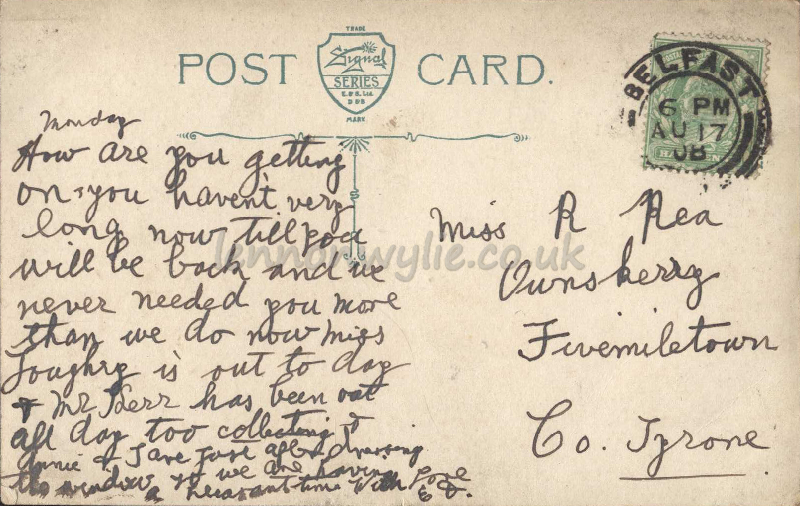 TRADE
Signal
SERIES
E. & S. Ltd.
D & B
MARK
POST CARD.
BELFAST
6 PM
AU 17
08
Monday
How are you getting
on, you havent very
long now till you
will be back and we
never needed you more
than we do now Miss
Loughry is out to day
& Mr Kerr has been out
all day too collecting &
Annie & I are just after dressing
the window so we are having
a pleasant time With Love
Miss R Rea
Ownskerry
Fivemiletown
Co. Tyrone
lennonwylie.co.uk